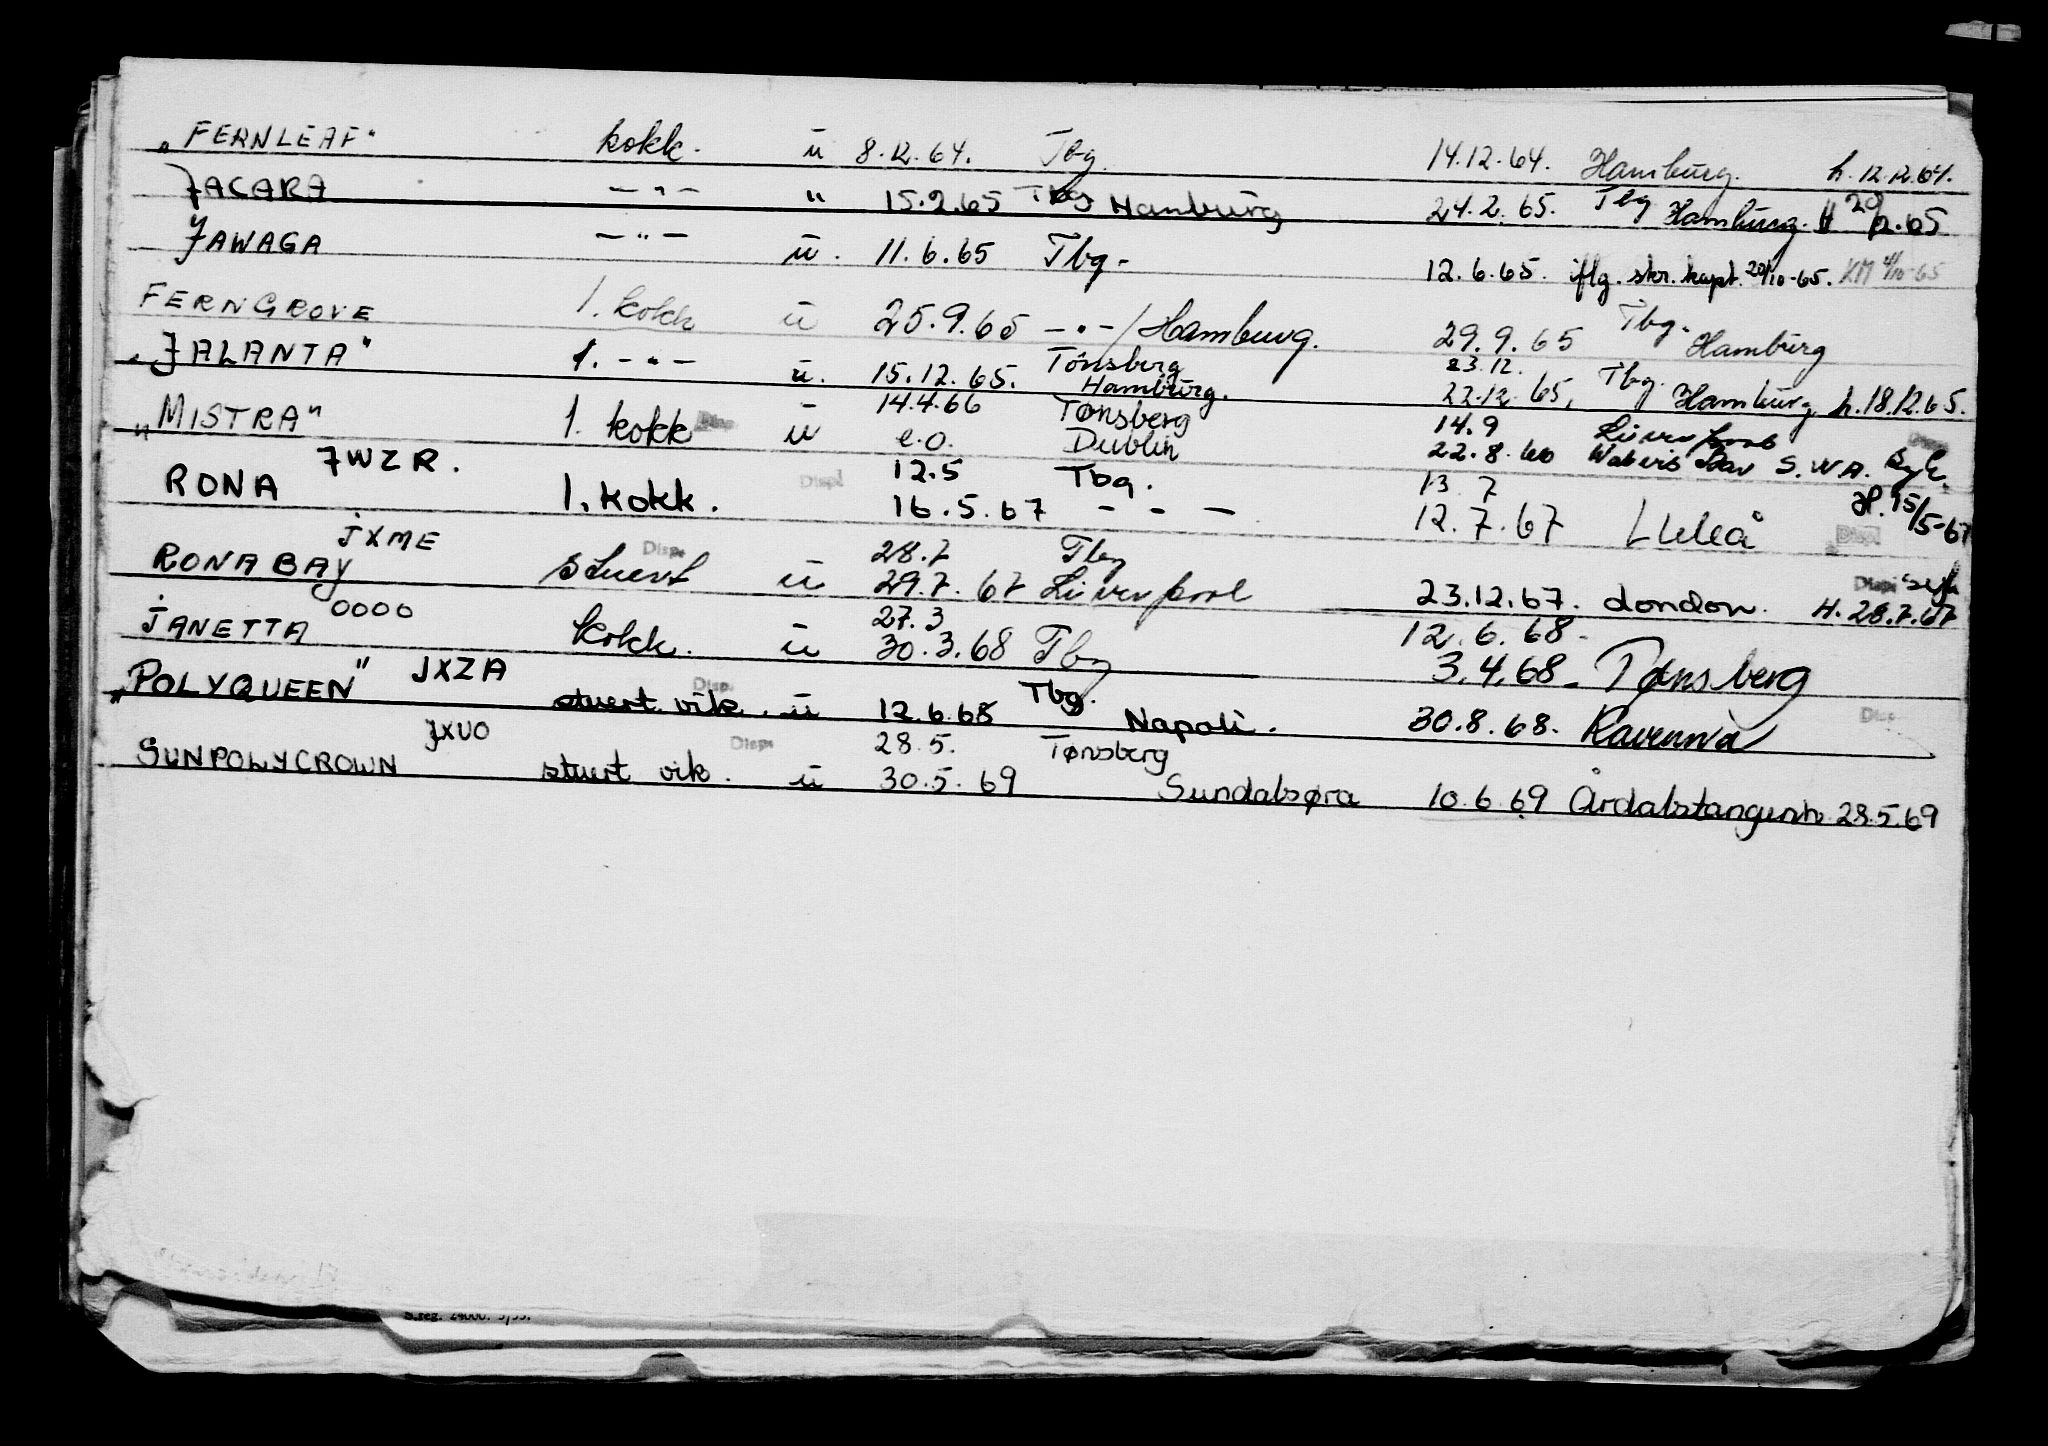 „FERNLEAF" kokk. ü 8.12.64. Tbg. 14.12.64. Hamburg. h. 12.12.64.
JACARA —"— " 15.2.65 Tbg Hamburg 24.2.65. Tbg Hamburg. H 20/2.65
JAWAGA —"— ü. 11.6.65 Tbg. 12.6.65. iflg. skr. kapt. 20/10-65. KM 4/10-65
FERNGROVE 1. kokk ü 25.9.65 —"—/Hamburg. 29.9.65 Tbg. Hamburg
„JALANTA" 1. —"— ü. 15.12.65. Tönsberg Hamburg. 23.12. 22.12.65. Tbg. Hamburg h.18.12.65.
„MISTRA" 1. kokk Disp. ü 14.4.66 Tønsberg 14.9 Liverpool Disp.
e.o. Dublin 22.8.66 Walvis Bay S.W.A. syk.
JWZR. 12.5 Tbg. 13.7
RONA 1. kokk. Disp. 16.5.67 — — — 12.7.67 Luleå H. 15/5-67 Disp.
JXME Disp. 28.7 Tbg
RONABAY stuert ü 29.7.67 Liverpool 23.12.67. London. Disp. H. 28.7.67
0000 27.3 12.6.68.
JANETTA kokk. ü 30.3.68 Tbg 3.4.68. Tønsberg
„POLYQUEEN" JXZA stuert vik. Disp. ü 12.6.68 Tbg. Napoli. 30.8.68. Ravenna Disp.
JXUO Disp. 28.5. Tønsberg
SUNPOLYCROWN stuert vik. ü 30.5.69 Sundalsøra 10.6.69 Årdalstangen h. 28.5.69
S.reg. 24000. 5/53.